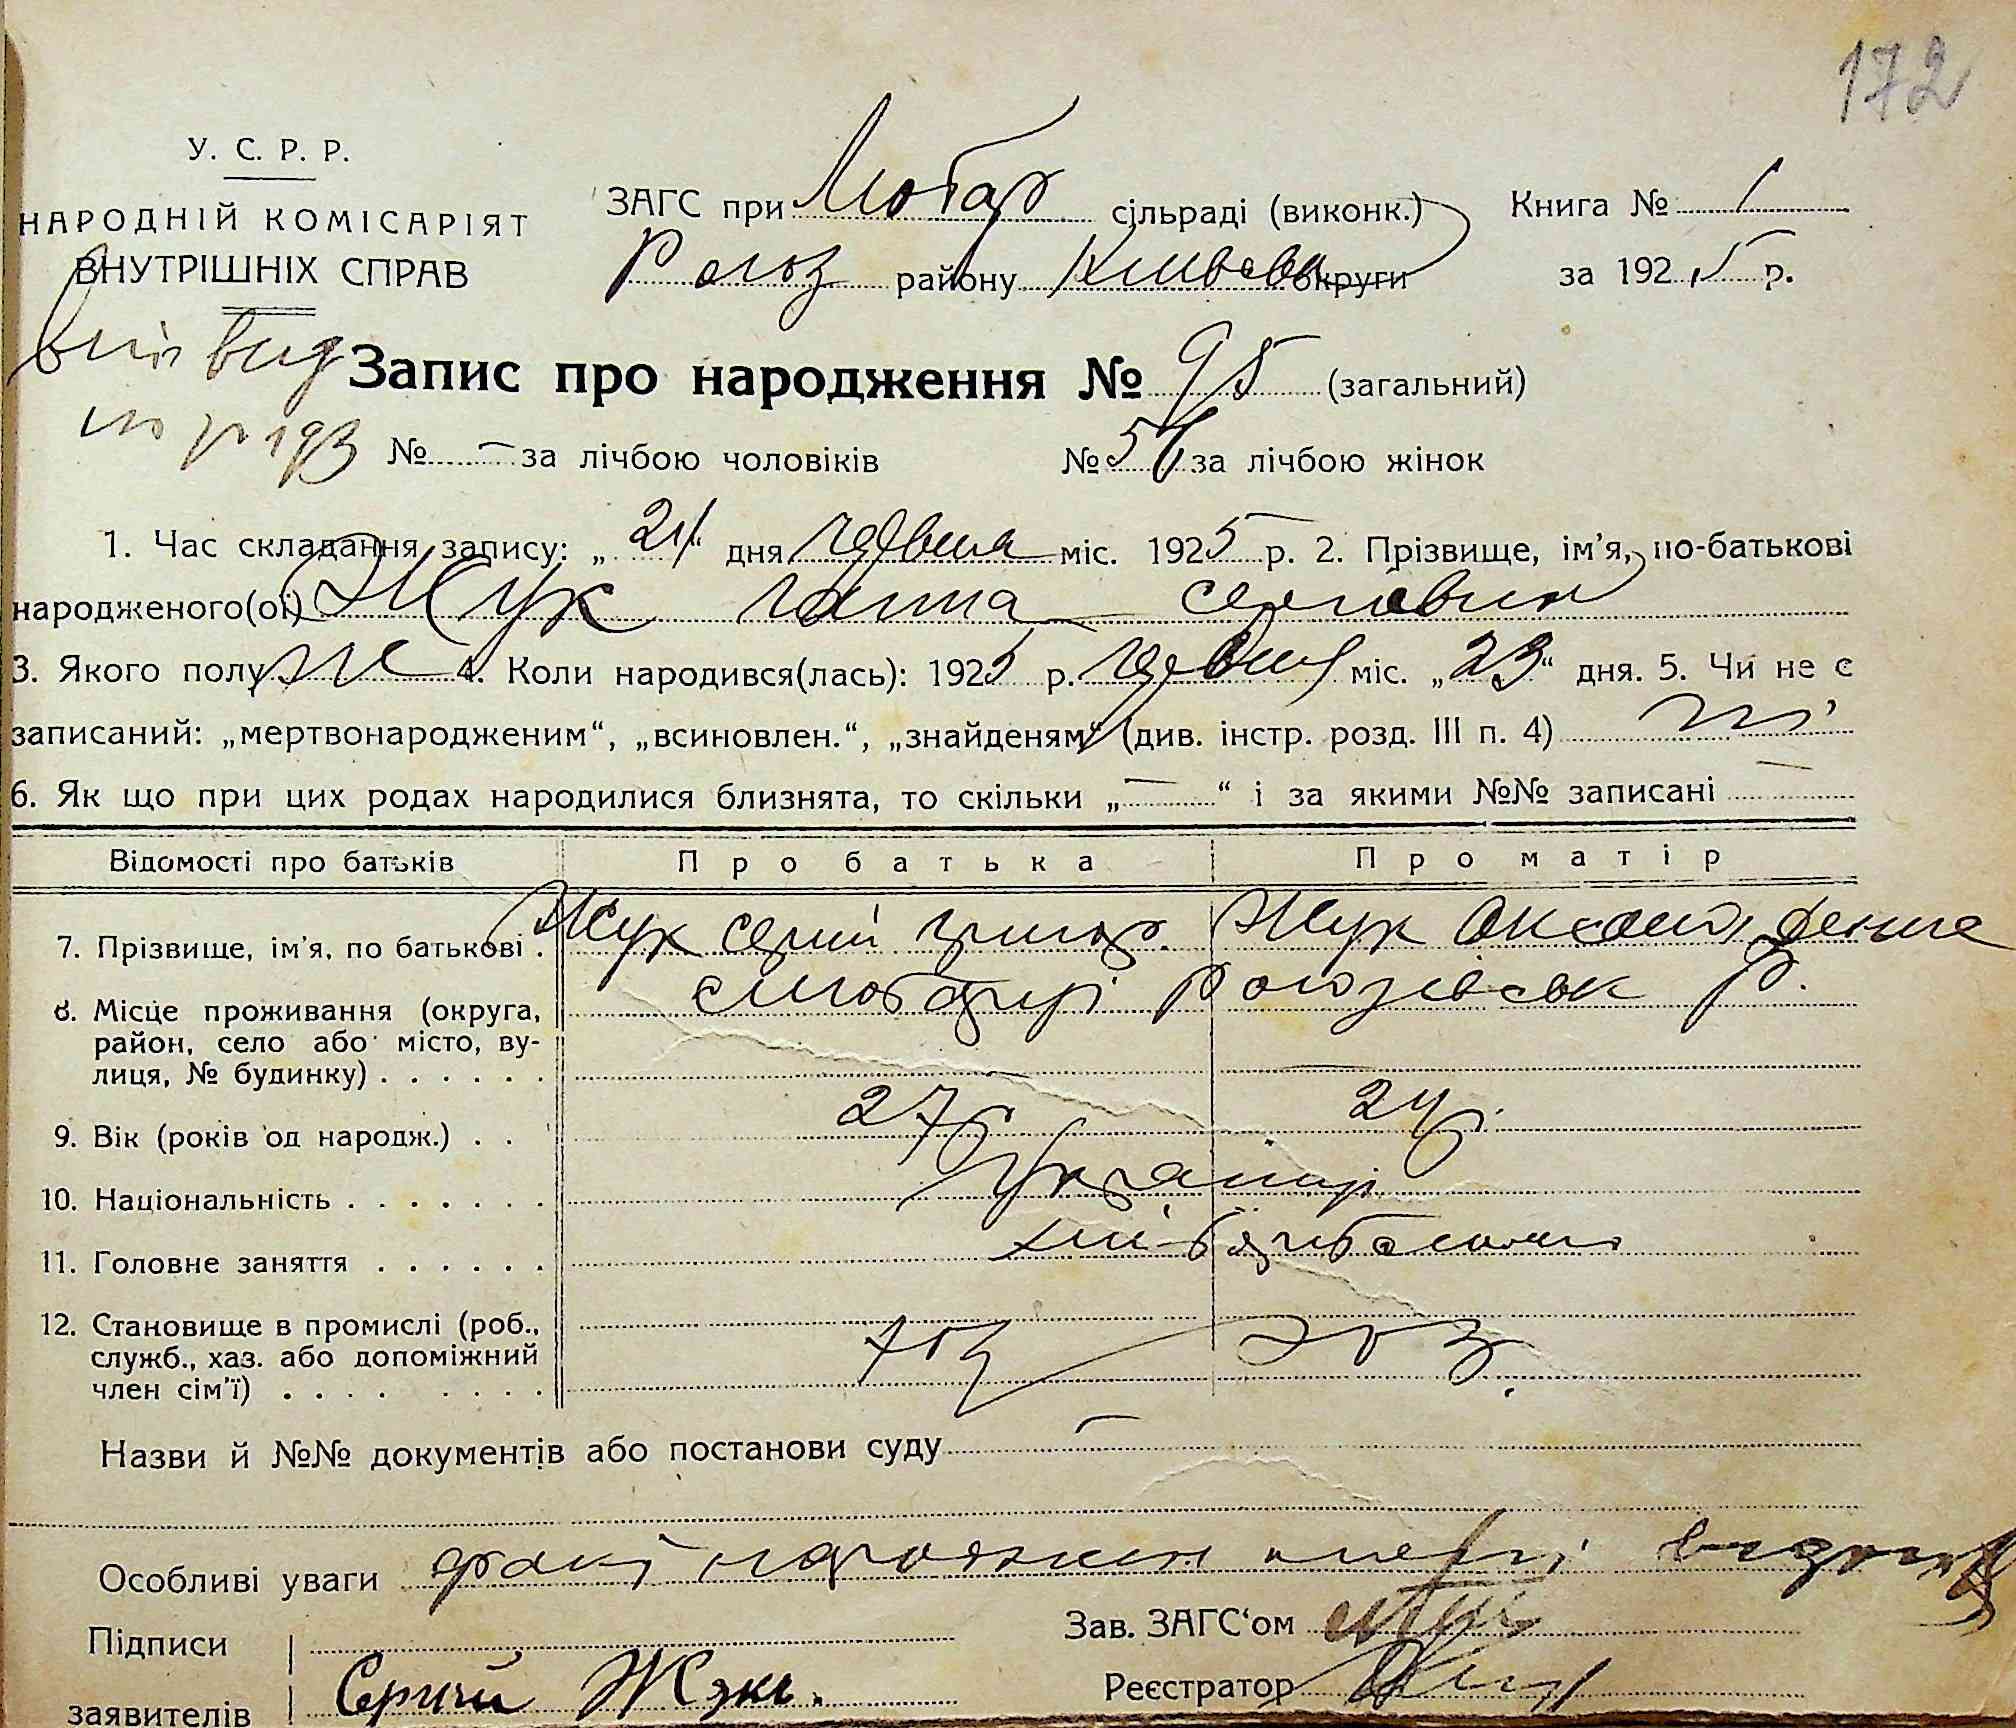 172
У. С. Р. Р.
НАРОДНІЙ КОМІСАРІЯТ
ВНУТРІШНІХ СПРАВ
ЗАГС при Любар сільраді (виконк.)
Рогоз району Київськ округи
Книга № 1
за 1925 р.
Запис про народження № 95 (загальний)
№ — за лічбою чоловіків № 56 за лічбою жінок
1. Час складання запису: „24“ дня червня міс. 1925 р. 2. Прізвище, ім'я, по-батькові
народженого(ої) Жук Ганна Сергіївна
3. Якого полу ж 4. Коли народився(лась): 1925 р. червня міс. „23“ дня. 5. Чи не є
записаний: „мертвонародженим“, „всиновлен.“, „знайденям“ (див. інстр. розд. III п. 4) ні
6. Як що при цих родах народилися близнята, то скільки „—“ і за якими №№ записані —
Відомості про батьків Про батька Про матір
7. Прізвище, ім'я, по батькові . Жук Сергій Григор. Жук Оксана
8. Місце проживання (округа, с Любарці Рогозівськ р.
район, село або місто, ву-
лиця, № будинку) . . . . . .
9. Вік (років од народж.) . . 27 р 24 р.
10. Національність . . . . . . . Українці
11. Головне заняття . . . . . . хліборобство
12. Становище в промислі (роб.,
служб., хаз. або допоміжний хоз хоз.
член сім'ї) . . . . . . . .
Назви й №№ документів або постанови суду —
Особливі уваги факт народження
Підписи
заявителів Сергий Жук.
Зав. ЗАГС'ом
Реєстратор